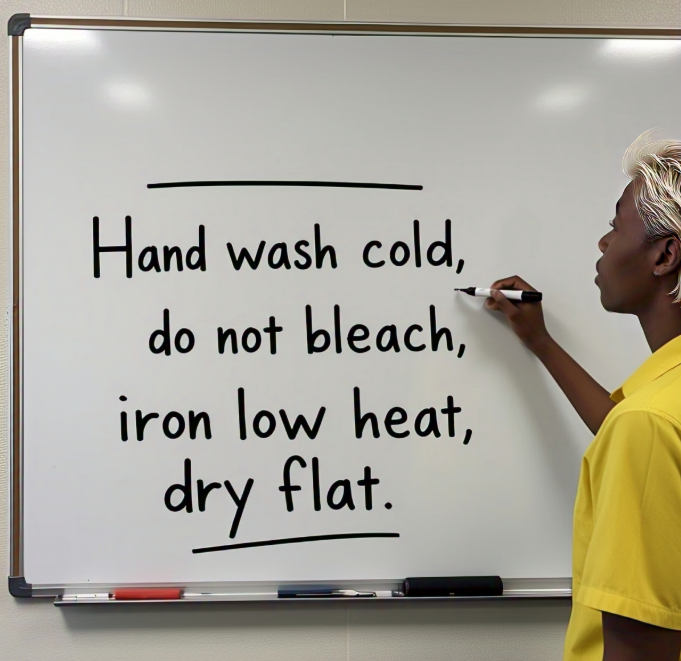 Hand wash cold,
do not bleach,
iron low heat,
dry flat.